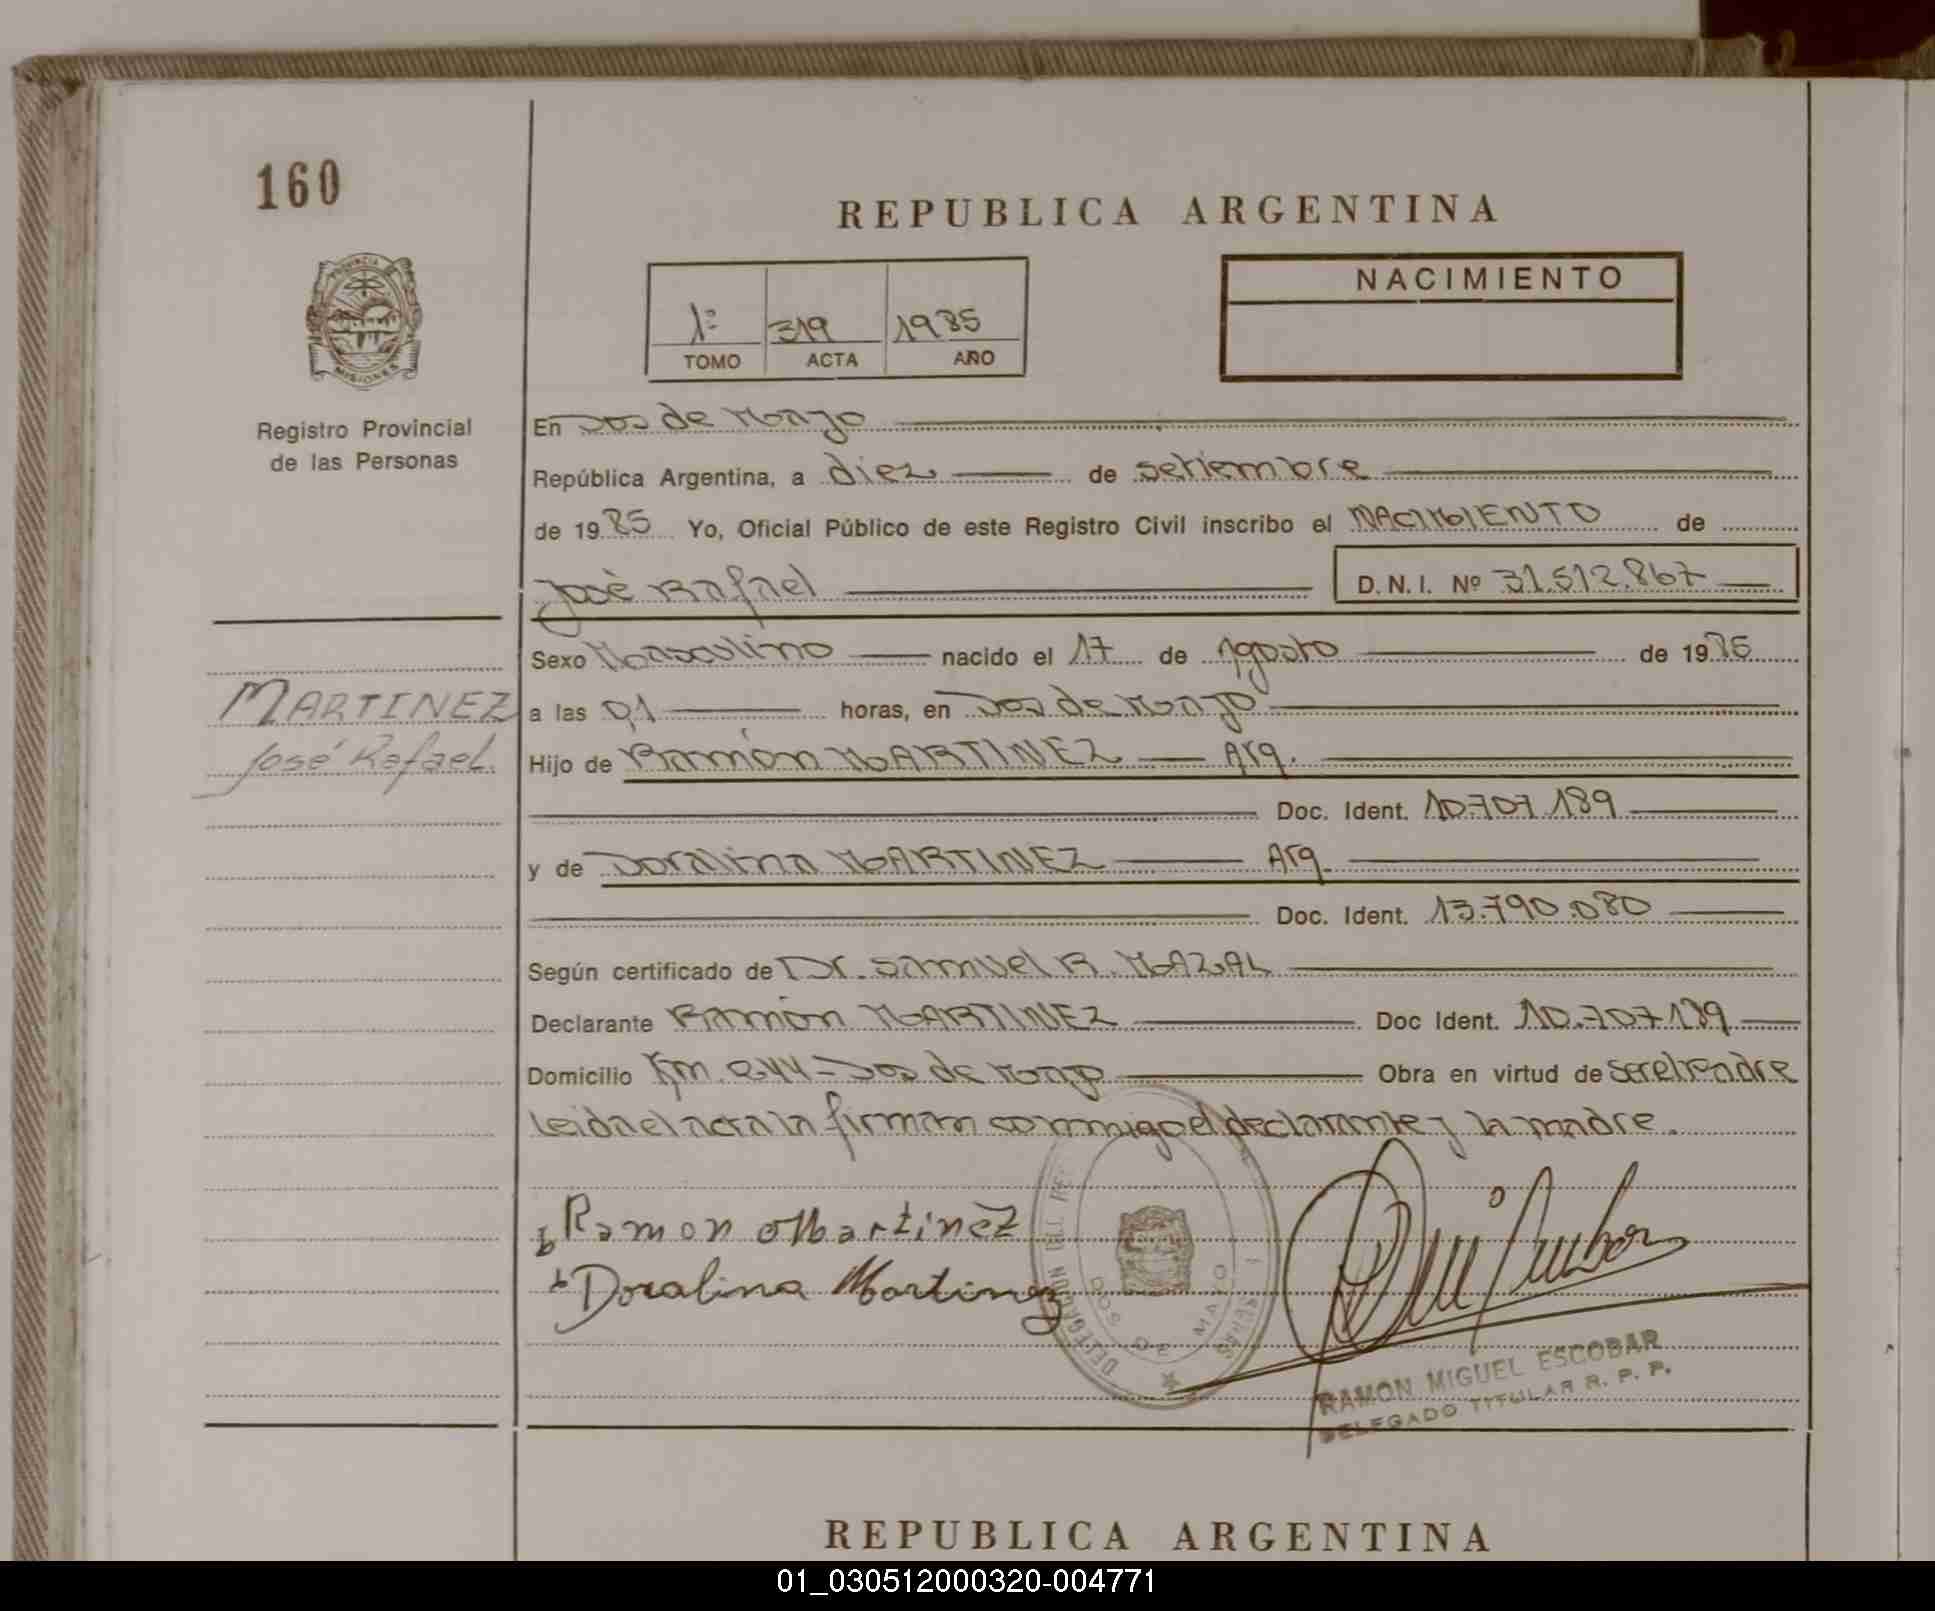 160
REPUBLICA ARGENTINA
PROVINCIA DE
MISIONES
Registro Provincial
de las Personas
NACIMIENTO
1º 319 1985
TOMO ACTA AÑO
En Dos de Mayo
República Argentina, a diez de setiembre
de 1985 Yo, Oficial Público de este Registro Civil inscribo el NACIMIENTO de
José Rafael D.N.I. Nº 31.512.867
Sexo Masculino nacido el 17 de Agosto de 1985
MARTINEZ
José Rafael.
a las 01 horas, en Dos de Mayo
Hijo de Ramón MARTINEZ Arg.
Doc. Ident. 10.707.189
y de Doralina MARTINEZ Arg.
Doc. Ident. 13.790.080
Según certificado de Dr. Samuel R. MAZAL
Declarante Ramón MARTINEZ Doc Ident. 10.707.189
Domicilio Km. 244 - Dos de Mayo Obra en virtud de ser el Padre
Leida el acta la firman conmigo el declarante y la madre.
Ramon Martinez
Doralina Martinez
DELEGACION DEL REG
DOS DE MAYO
RAMON MIGUEL ESCOBAR
DELEGADO TITULAR R. P. P.
REPUBLICA ARGENTINA
01_030512000320-004771